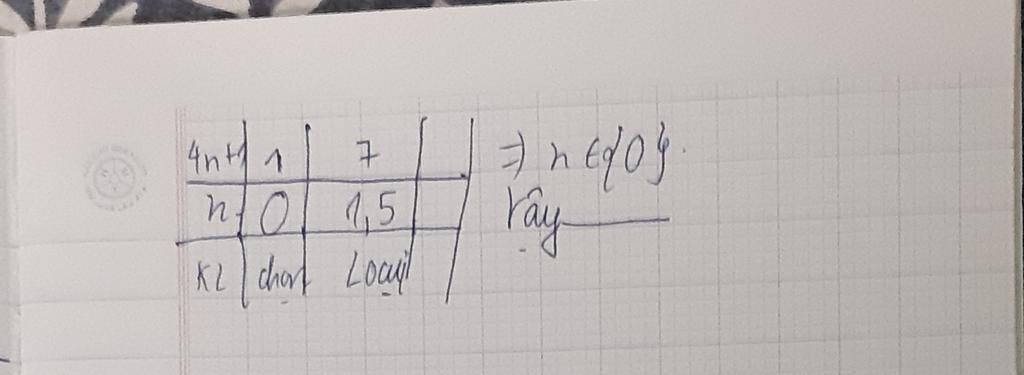 4n+1 | 1 | 7 | ⇒ n ∈ {0}.
n | 0 | 1,5 | Vậy
KL | chọn | Loại